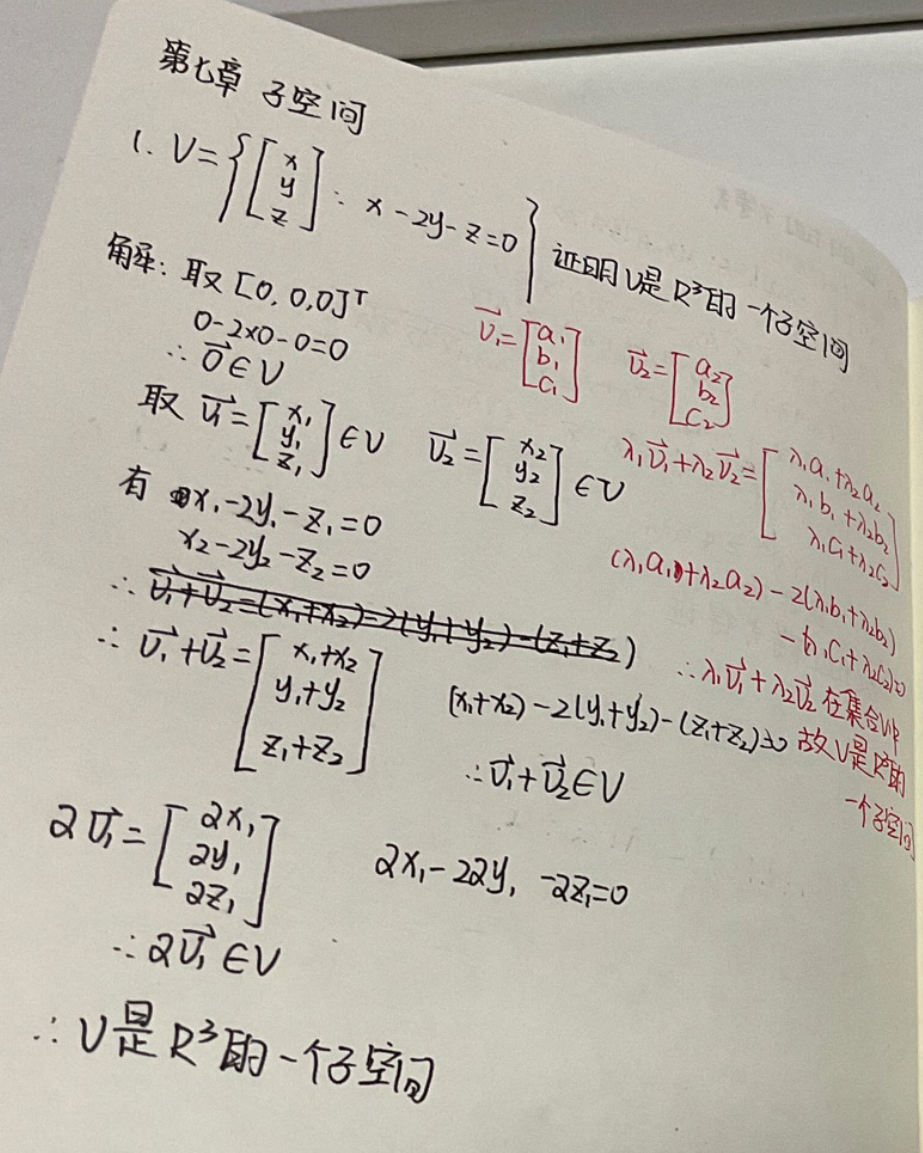 第七章 子空间
1. V={[x y z] : x-2y-z=0} 证明V是R³的一个子空间
解: 取[0, 0, 0]ᵀ
0-2×0-0=0
∴ 0⃗∈V
取 v₁⃗=[x₁ y₁ z₁]∈V v₂⃗=[x₂ y₂ z₂]∈V
有 x₁-2y₁-z₁=0
x₂-2y₂-z₂=0
∴ v₁⃗+v₂⃗=(x₁+x₂)-2(y₁+y₂)-(z₁+z₂)
∴ v₁⃗+v₂⃗=[x₁+x₂ y₁+y₂ z₁+z₂] (x₁+x₂)-2(y₁+y₂)-(z₁+z₂)=0
∴v₁⃗+v₂⃗∈V
2v₁⃗=[2x₁ 2y₁ 2z₁] 2x₁-22y₁-2z₁=0
∴2v₁⃗∈V
∴V是R³的一个子空间
v₁⃗=[a₁ b₁ c₁] v₂⃗=[a₂ b₂ c₂]
λ₁v₁⃗+λ₂v₂⃗=[λ₁a₁+λ₂a₂ λ₁b₁+λ₂b₂ λ₁c₁+λ₂c₂]
(λ₁a₁+λ₂a₂)-2(λ₁b₁+λ₂b₂)
-(λ₁c₁+λ₂c₂)=0
∴λ₁v₁⃗+λ₂v₂⃗在集合V中
故V是R³的
一个子空间